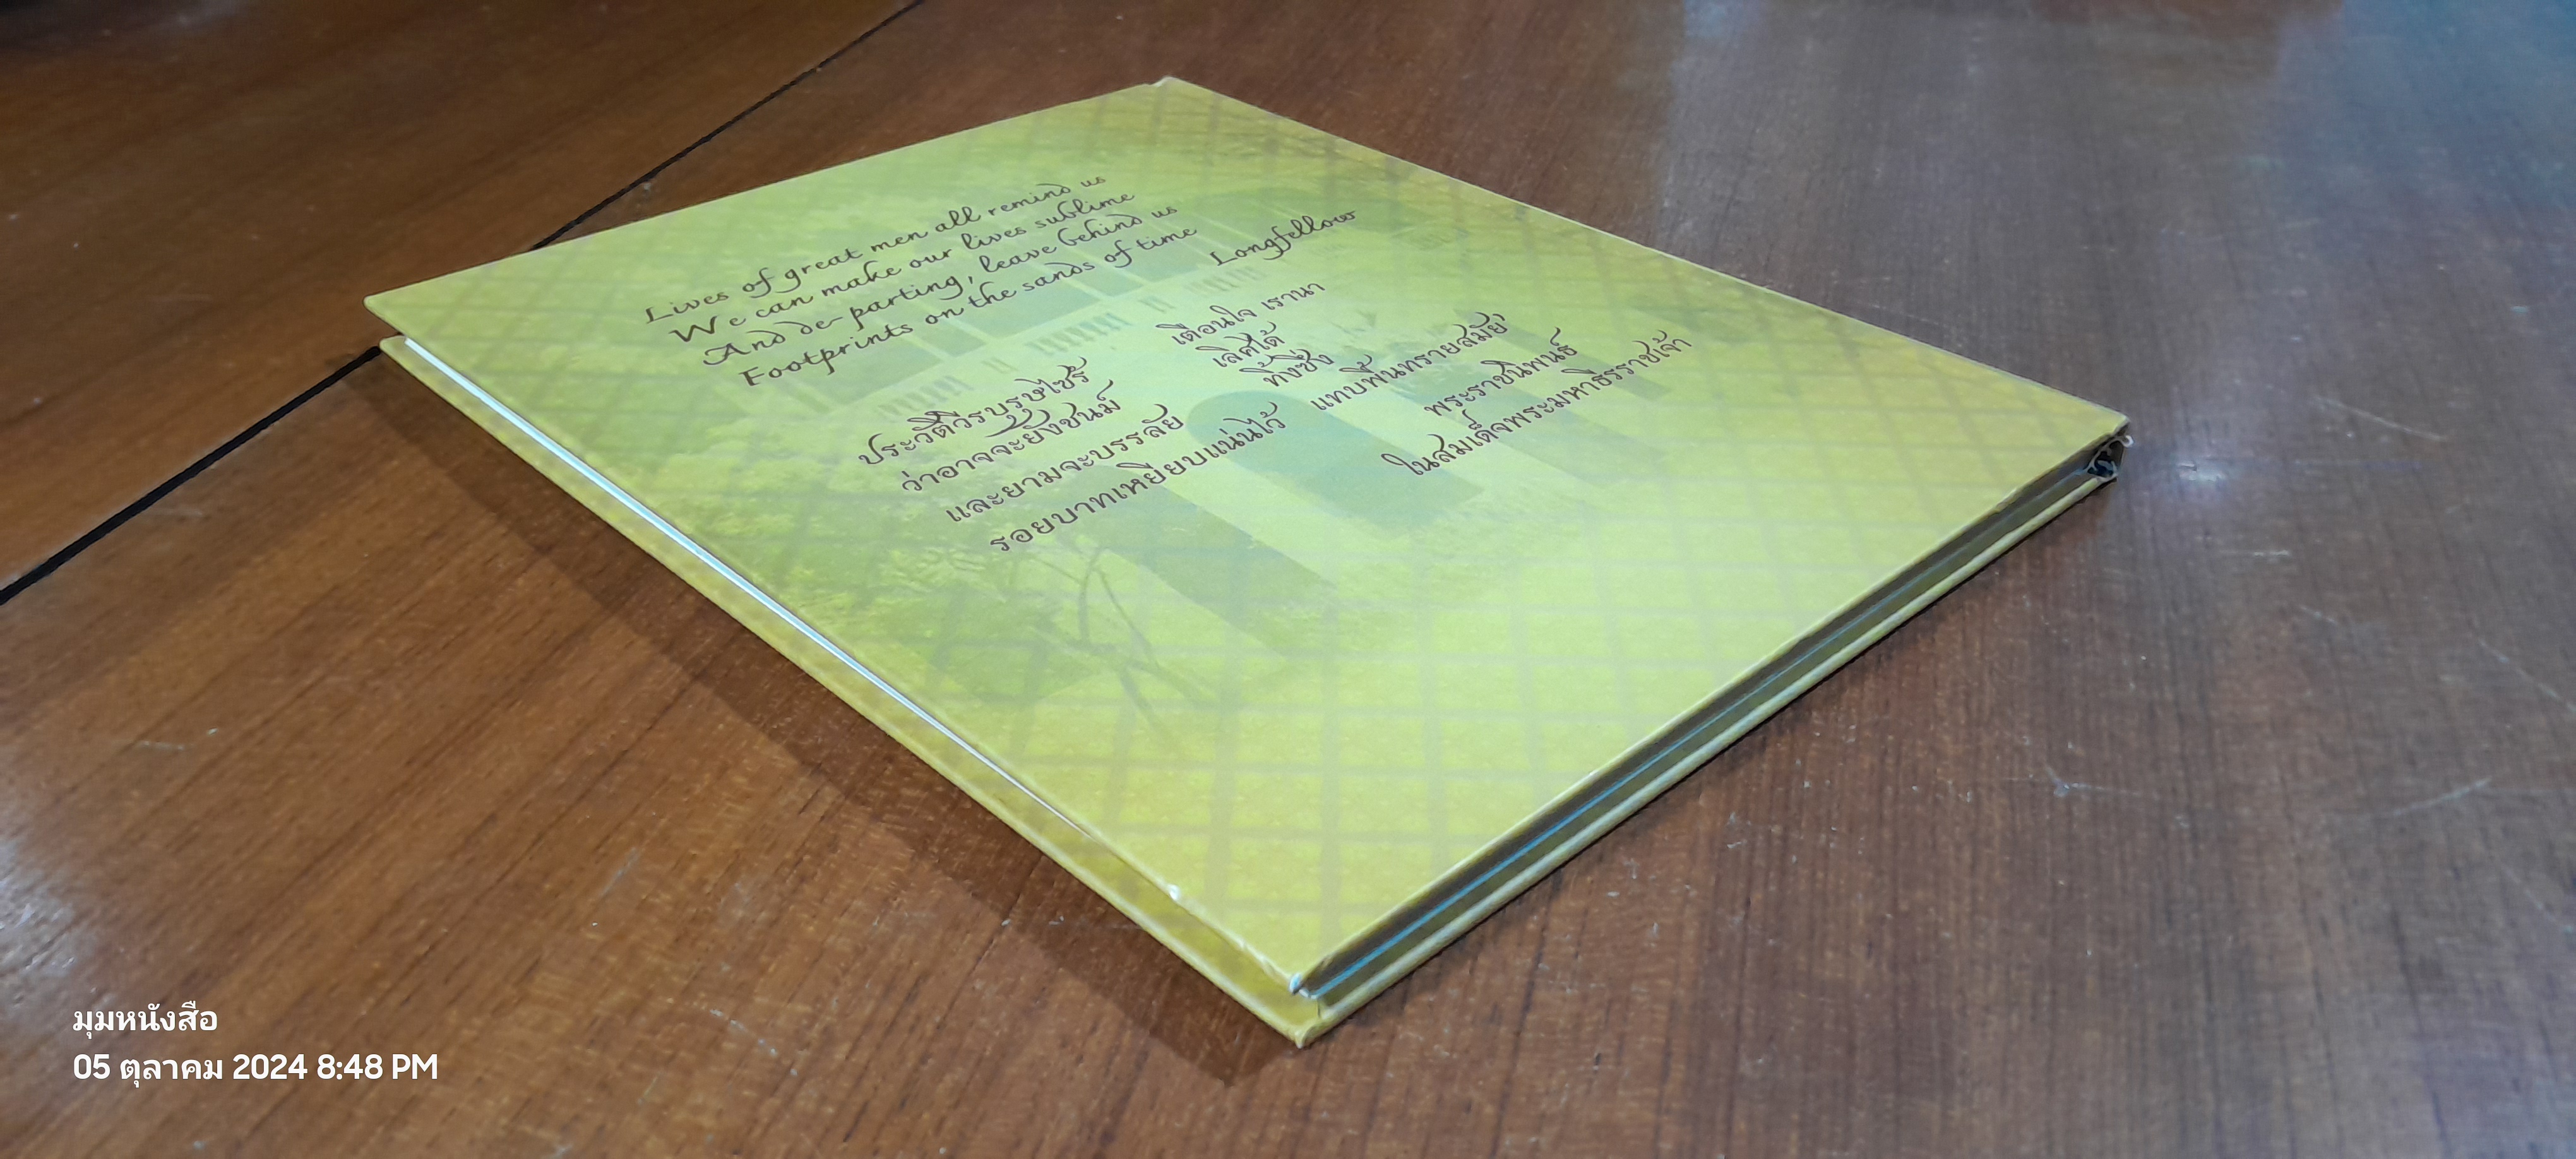 Lives of great men all remind us
We can make our lives sublime
And de-parting, leave behind us
Footprints on the sands of time
Longfellow
ประวัติวีรบุรุษไซร้ เตือนใจ เรานา
ว่าอาจจะยังชนม์ เลิศได้
และยามจะบรรลัย ทิ้งซึ่ง
รอยบาทเหยียบแน่นไว้ แทบพื้นทรายสมัย
พระราชนิพนธ์
ในสมเด็จพระมหาธีรราชเจ้า
มุมหนังสือ
05 ตุลาคม 2024 8:48 PM